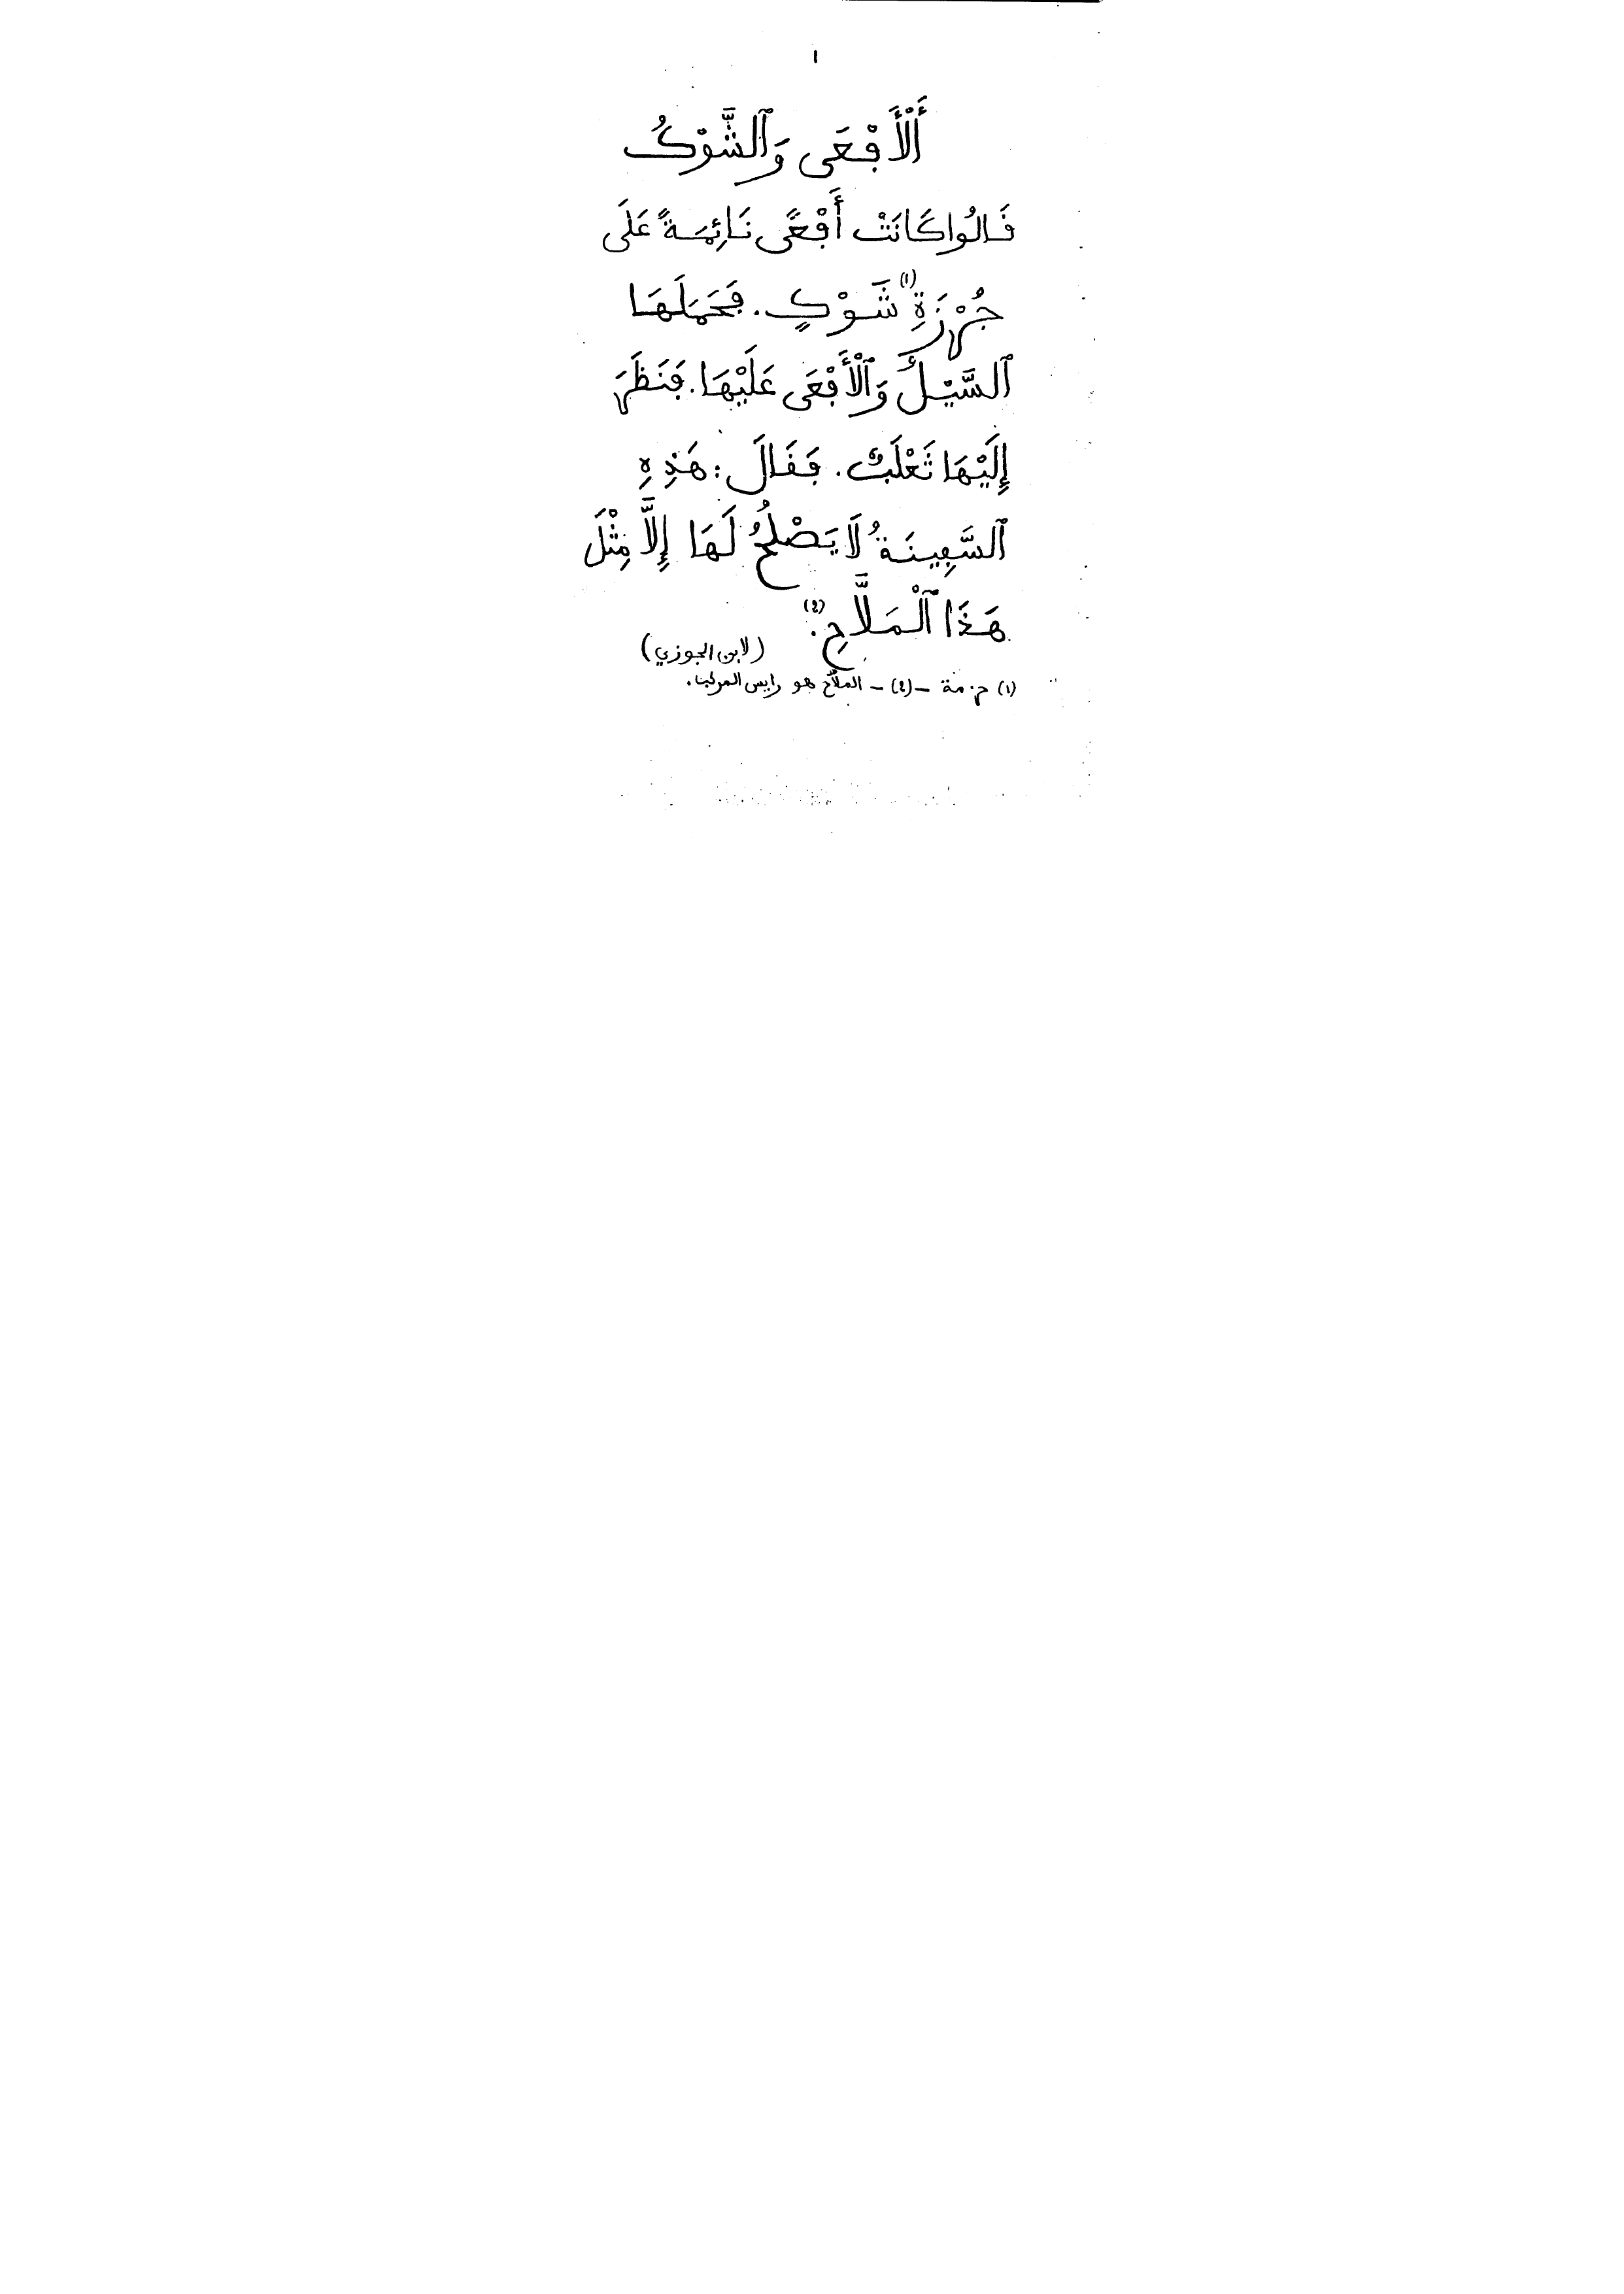 ١
أَلْأَفْعَى وَٱلشَّوْكُ
قَالُوا كَانَتْ أَفْعًى نَائِمَةً عَلَى
جُرْزَةِ (١) شَوْكٍ. فَحَمَلَهَا
ٱلسَّيْلُ وَٱلْأَفْعَى عَلَيْهَا. فَنَظَرَ
إِلَيْهَا ثَعْلَبٌ. فَقَالَ: هَذِهِ
ٱلسَّفِينَةُ لَا يَصْلُحُ لَهَا إِلَّا مِثْلَ
هَذَا ٱلْمَلَّاحِ. (٢)
(لابن الجوزي)
(١) حزمة – (٢) – الملاّح هو رايس المركب.